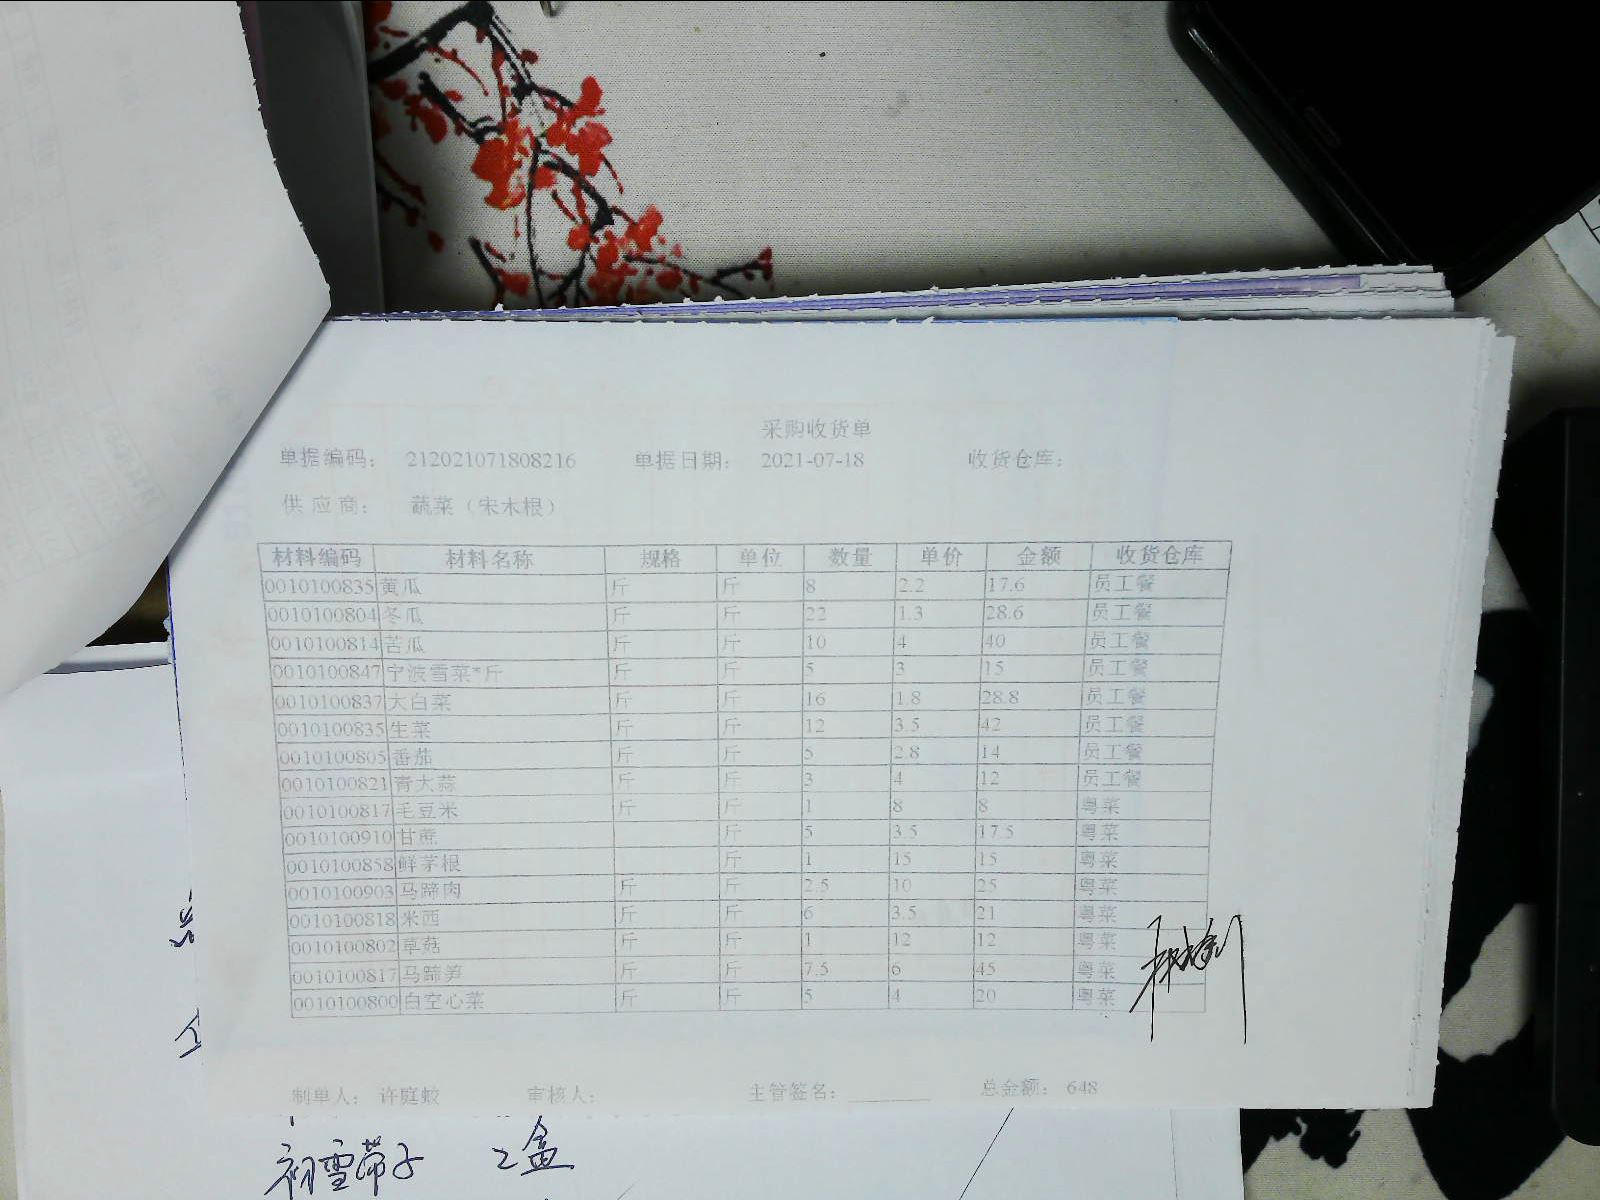 采购收货单
单据编码： 212021071808216 单据日期： 2021-07-18 收货仓库：
供应商： 蔬菜（宋木根）
材料编码 材料名称 规格 单位 数量 单价 金额 收货仓库
0010100835 黄瓜 斤 斤 8 2.2 17.6 员工餐
0010100804 冬瓜 斤 斤 22 1.3 28.6 员工餐
0010100814 苦瓜 斤 斤 10 4 40 员工餐
0010100847 宁波雪菜*斤 斤 斤 5 3 15 员工餐
0010100837 大白菜 斤 斤 16 1.8 28.8 员工餐
0010100835 生菜 斤 斤 12 3.5 42 员工餐
0010100805 番茄 斤 斤 5 2.8 14 员工餐
0010100821 青大蒜 斤 斤 3 4 12 员工餐
0010100817 毛豆米 斤 斤 1 8 8 粤菜
0010100910 甘蔗 斤 5 3.5 17.5 粤菜
0010100858 鲜茅根 斤 1 15 15 粤菜
0010100903 马蹄肉 斤 斤 2.5 10 25 粤菜
0010100818 米西 斤 斤 6 3.5 21 粤菜
0010100802 草菇 斤 斤 1 12 12 粤菜
0010100817 马蹄笋 斤 斤 7.5 6 45 粤菜
0010100800 白空心菜 斤 斤 5 4 20 粤菜
制单人： 许庭蛟 审核人： 主管签名： 总金额： 648
初雪带子 2盒